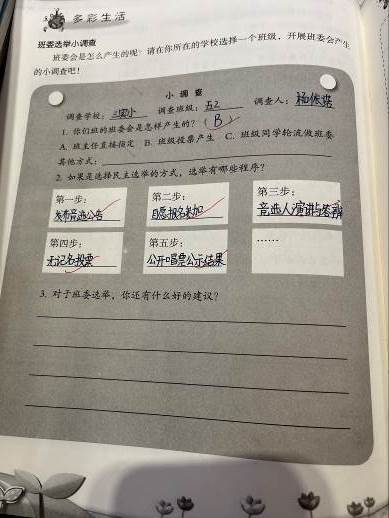 多彩生活
班委选举小调查
班委会是怎么产生的呢？请在你所在的学校选择一个班级，开展班委会产生
的小调查吧！
小调查
调查学校：三实小 调查班级：五2 调查人：
1. 你们班的班委会是怎样产生的？（B）
A. 班主任直接指定 B. 班级投票产生 C. 班级同学轮流做班委
其他方式：
2. 如果是选择民主选举的方式，选举有哪些程序？
第一步： 第二步： 第三步：
发布竞选公告 自愿报名参加 竞选人演讲与答辩
第四步： 第五步： ……
无记名投票 公开唱票公示结果
3. 对于班委选举，你还有什么好的建议？